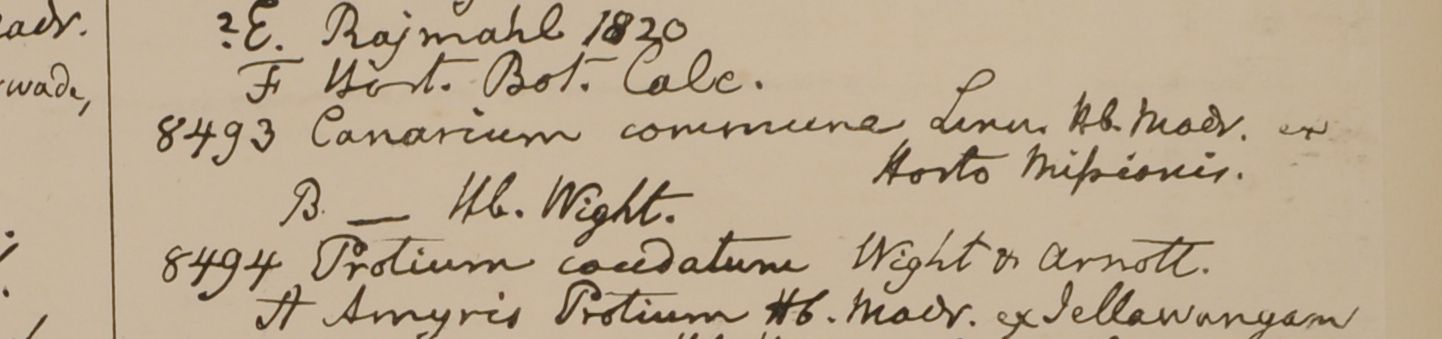 adr.
?E. Rajmahl 1820
wade,
F Hort. Bot. Calc.
8493 Canarium commune Linn. Hb. Madr. ex
Horto Missionis.
B. — Hb. Wight.
8494 Protium caudatum Wight & Arnott.
A Amyris Protium Hb. Madr. ex